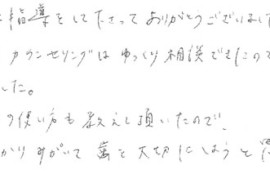 指導をして下さってありがとうございました
カウンセリングはゆっくり相談できたので
した。
の使い方も教えて頂いたので、
かりみがいて歯を大切にしようと